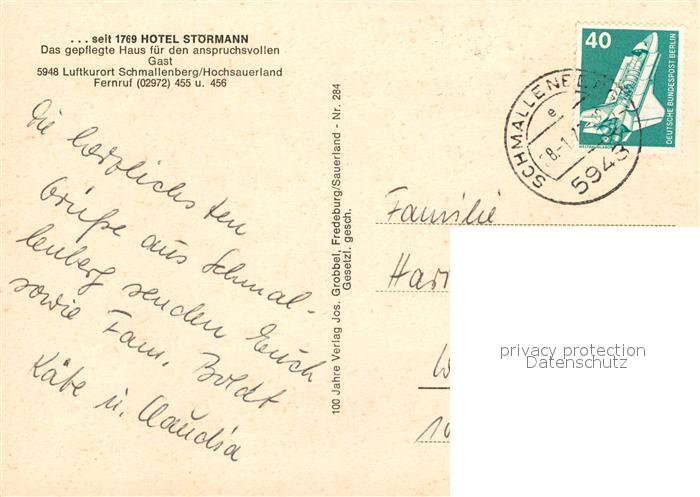 . . . seit 1769 HOTEL STÖRMANN
Das gepflegte Haus für den anspruchsvollen
Gast
5948 Luftkurort Schmallenberg/Hochsauerland
Fernruf (02972) 455 u. 456
Die herzlichsten
Grüße aus Schmal-
lenberg senden Euch
sowie Fam. Boldt
Käte u. Claudia
100 Jahre Verlag Jos. Grobbel, Fredeburg/Sauerland - Nr. 284
Gesetzl. gesch.
40
DEUTSCHE BUNDESPOST BERLIN
SCHMALLENBE
e
5948
Familie
Har
privacy protection
Datenschutz